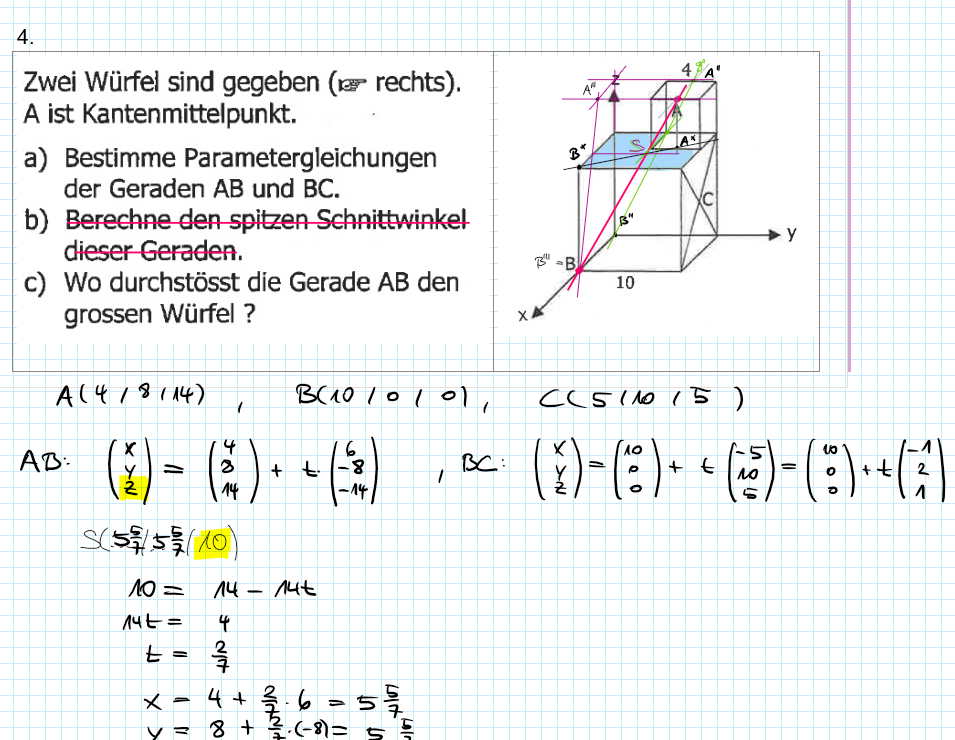 4.
Zwei Würfel sind gegeben (☞ rechts).
A ist Kantenmittelpunkt.
a) Bestimme Parametergleichungen
der Geraden AB und BC.
b) Berechne den spitzen Schnittwinkel
dieser Geraden.
c) Wo durchstösst die Gerade AB den
grossen Würfel ?
4 A"
A'" z
A
B* S A*
C
B"
y
B'" = B
10
x
A(4 / 8 / 14) , B(10 / 0 / 0) , C(5 / 10 / 5)
AB: (x y z) = (4 8 14) + t · (6 -8 -14) , BC: (x y z) = (10 0 0) + t (-5 10 5) = (10 0 0) + t (-1 2 1)
S(5 5/7 / 5 5/7 / 10)
10 = 14 - 14t
14t = 4
t = 2/7
x = 4 + 2/7 · 6 = 5 5/7
y = 8 + 2/7 · (-8) = 5 5/7